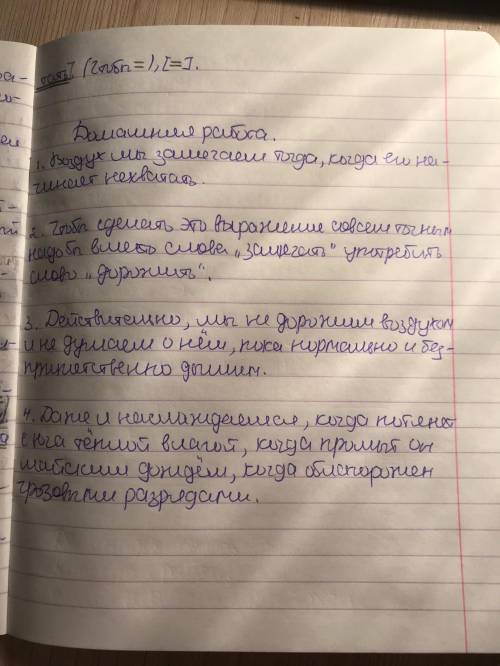 тать] (чтобы=), [=].
Домашняя работа.
1. Воздух мы замечаем тогда, когда его на-
чинает нехватать.
2. Чтобы сделать это выражение совсем точным
надобы вместо слова „замечать" употребить
слово „дорожить".
3. Действительно, мы не дорожим воздухом
и не думаем о нём, пока нормально и без-
припетственно дышим.
4. Даже и наслаждаемся, когда потянет
с юга тёплой влагой, когда промыт он
майским дождём, когда облагорожен
грозовыми разрядами.